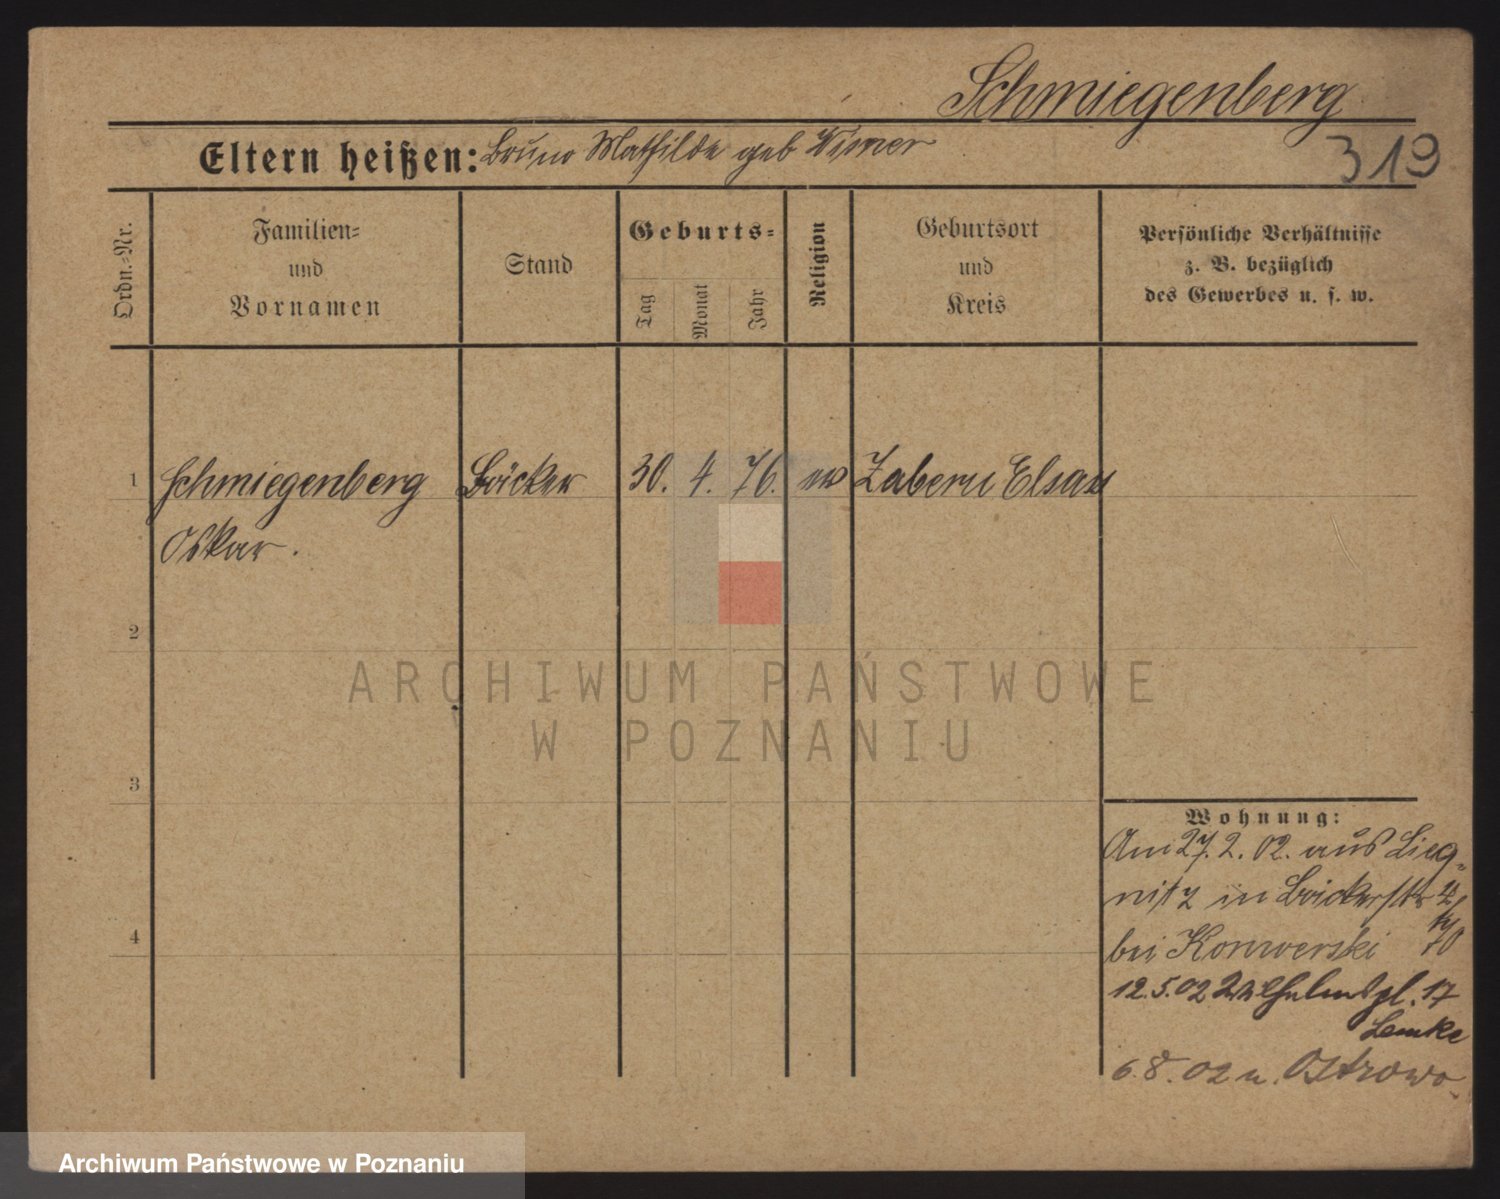 Schmiegenberg
319
Eltern heißen: Bruno Mathilde geb
Ordn.-Nr.
Familien-
und
Vornamen
Stand
Geburts-
Tag
Monat
Jahr
Religion
Geburtsort
und
Kreis
Persönliche Verhältnisse
z. B. bezüglich
des Gewerbes u. s. w.
1 Schmiegenberg Bäcker 30. 4. 76. ev Zabern Elsass
Oskar.
2
3
4
Wohnung:
Am 27. 2. 02. aus Lieg-
nitz in Bäckerstr
bei
12.5.02 Wilhelmspl. 17
Lemke
6.8.02 n. Ostrowo
ARCHIWUM PAŃSTWOWE
W POZNANIU
Archiwum Państwowe w Poznaniu